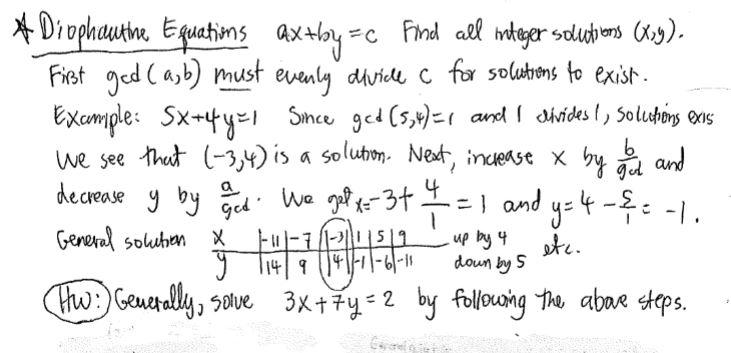 * Diophantine Equations ax+by=c Find all integer solutions (x,y).
First gcd(a,b) must evenly divide c for solutions to exist.
Example: 5x+4y=1 Since gcd(5,4)=1 and 1 divides 1, solutions exis
We see that (-3,4) is a solution. Next, increase x by b/gcd and
decrease y by a/gcd. We get x=-3+4/1=1 and y=4-5/1=-1.
General solution x | -11 | -7 | -3 | 1 | 5 | 9 up by 4 etc.
y | 14 | 9 | 4 | -1 | -6 | -11 down by 5
HW: Generally, solve 3x+7y=2 by following the above steps.